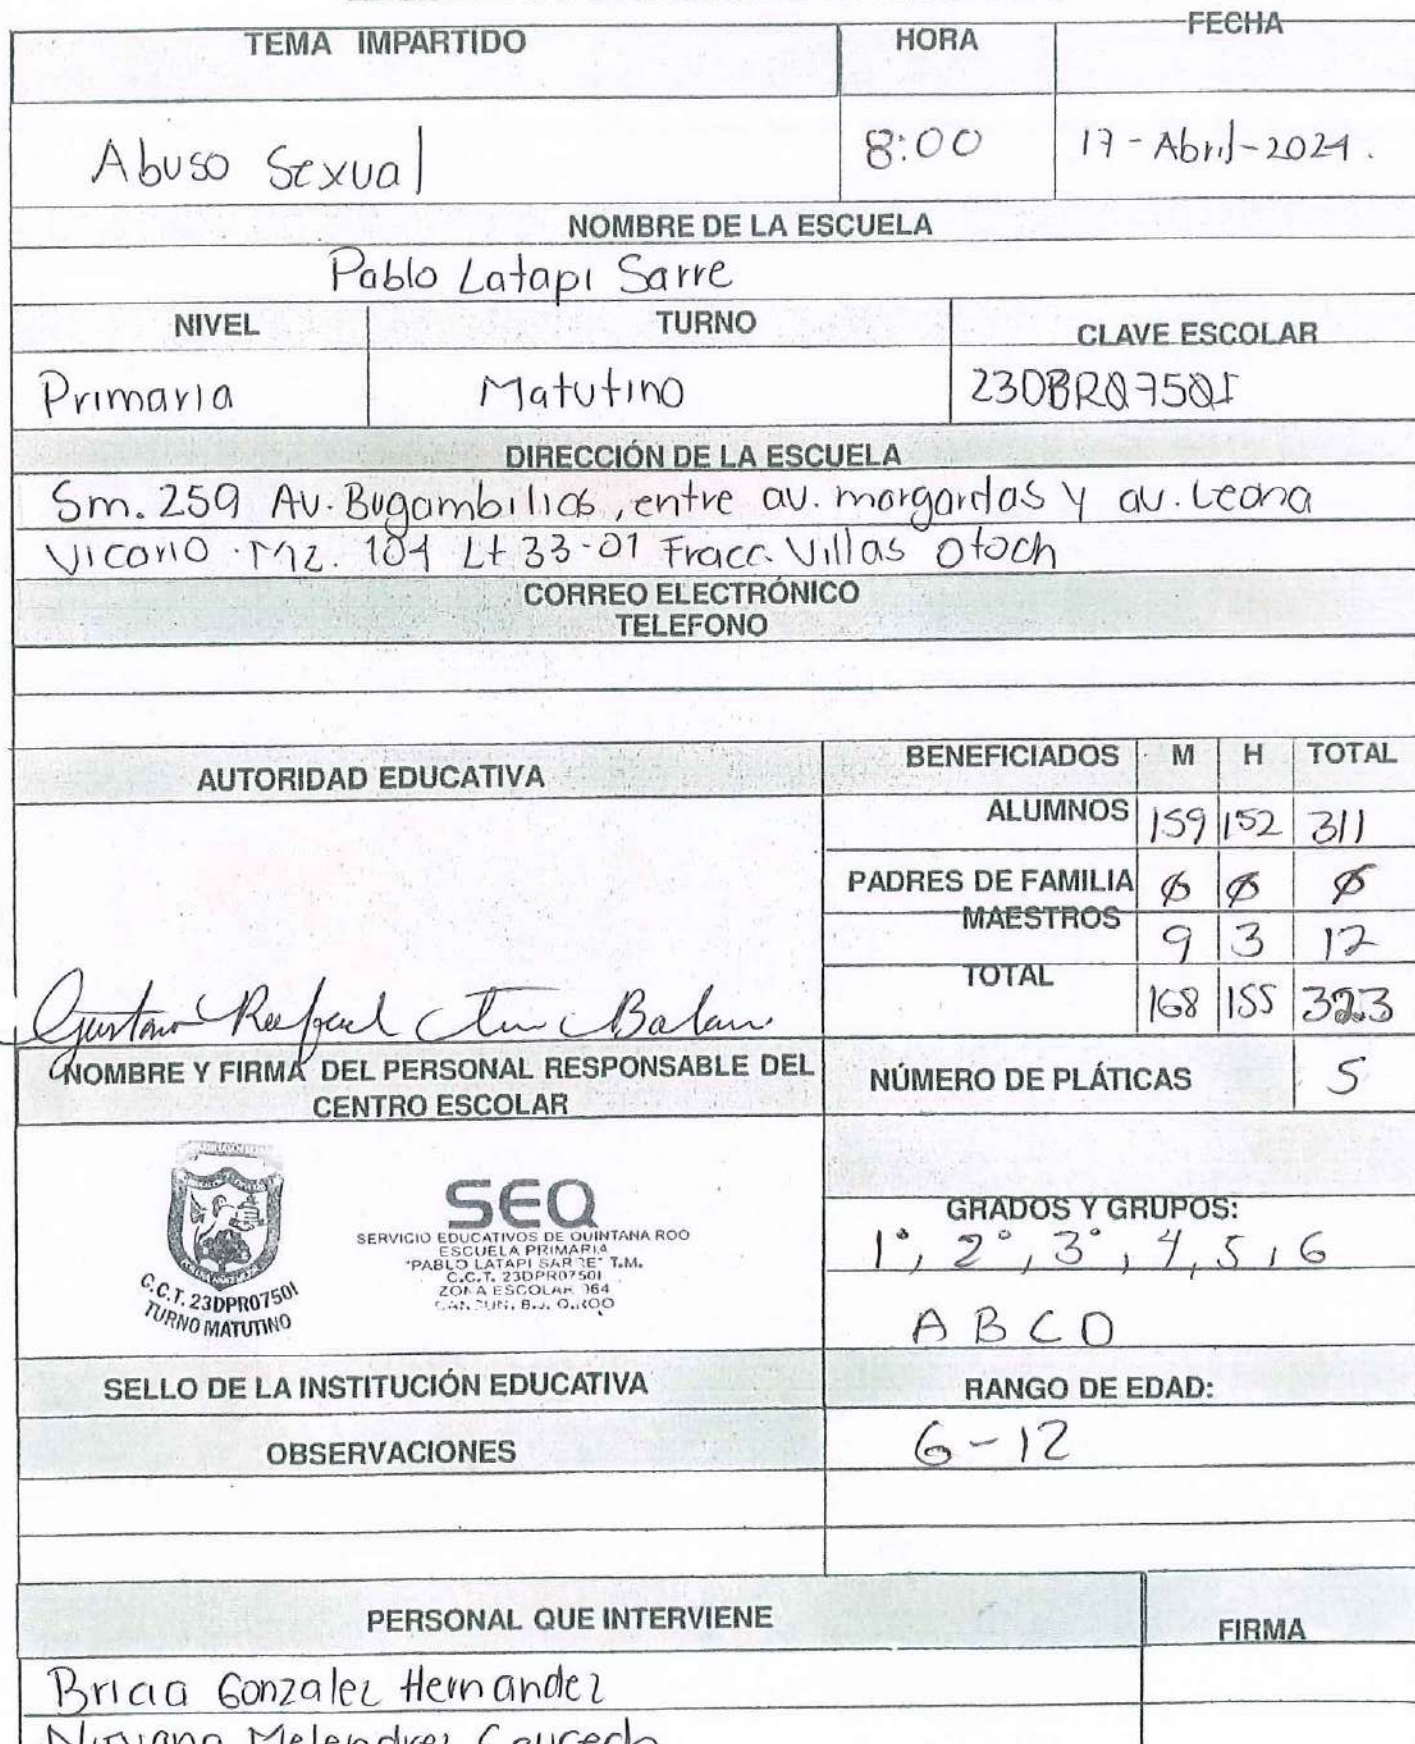 TEMA IMPARTIDO HORA FECHA
Abuso Sexual 8:00 17-Abril-2024.
NOMBRE DE LA ESCUELA
Pablo Latapi Sarre
NIVEL TURNO CLAVE ESCOLAR
Primaria Matutino 23DBR0750I
DIRECCIÓN DE LA ESCUELA
Sm. 259 Av. Bugambilias, entre av. margaritas y av. Leona
Vicario. Mz. 104 Lt 33-01 Fracc. Villas Otoch
CORREO ELECTRÓNICO
TELEFONO
AUTORIDAD EDUCATIVA BENEFICIADOS M H TOTAL
ALUMNOS 159 152 311
PADRES DE FAMILIA 0 0 0
MAESTROS 9 3 12
TOTAL 168 155 323
Gustavo Rafael Balam
NOMBRE Y FIRMA DEL PERSONAL RESPONSABLE DEL
CENTRO ESCOLAR
NÚMERO DE PLÁTICAS 5
C.C.T. 23DPR0750I
TURNO MATUTINO
SEQ
SERVICIO EDUCATIVOS DE QUINTANA ROO
ESCUELA PRIMARIA
"PABLO LATAPI SARRE" T.M.
C.C.T. 23DPR0750I
ZONA ESCOLAR 064
CANCUN, B.J. Q.ROO
GRADOS Y GRUPOS:
1°, 2°, 3°, 4, 5, 6
A B C D
SELLO DE LA INSTITUCIÓN EDUCATIVA RANGO DE EDAD:
OBSERVACIONES 6-12
PERSONAL QUE INTERVIENE FIRMA
Bricia Gonzalez Hernandez
Nirvana Melendrez Caucedo